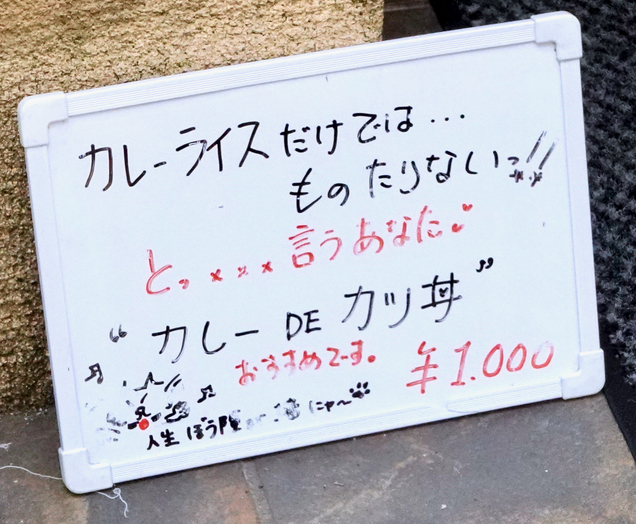 カレーライスだけでは…
ものたりないっ!!
とっ×××言うあなた♥
"カレー DE カツ丼"
おすすめです。
¥1.000
人生 ぼう にゃ〜